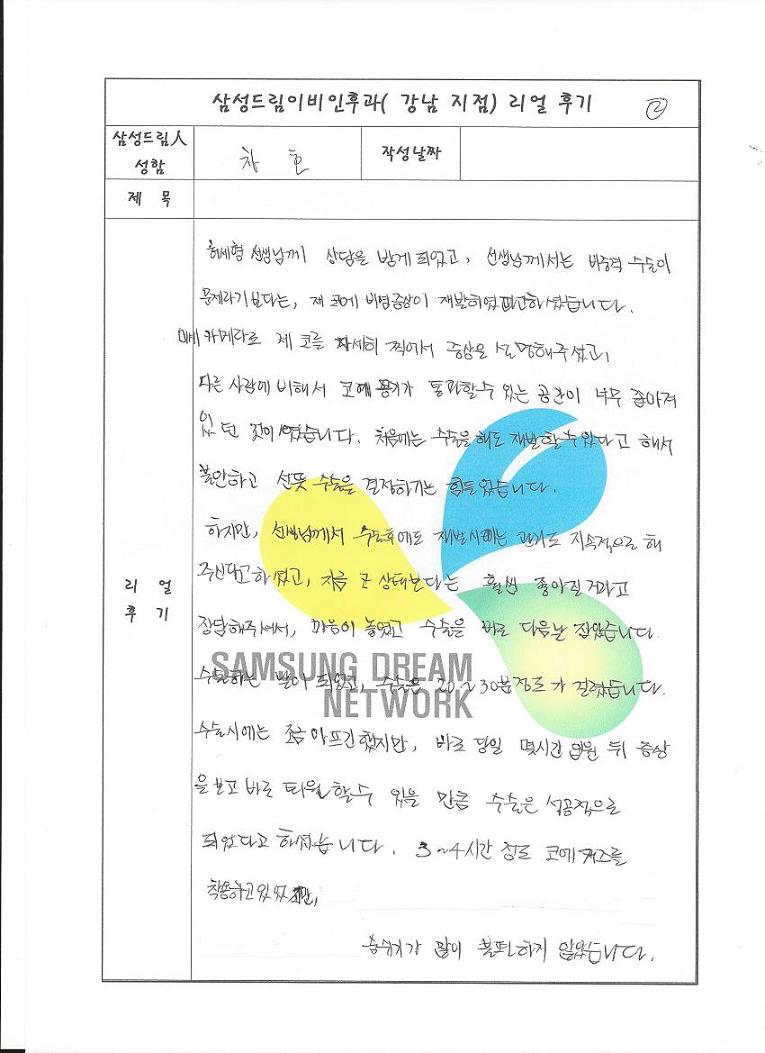 삼성드림이비인후과( 강남 지점) 리얼 후기 ②
삼성드림人
성함
차 호
작성날짜
제 목
허세형 선생님께 상담을 받게 되었고, 선생님께서는 비중격 수술이
문제라기 보다는, 제 코에 비염증상이 재발하였다고하셨습니다.
카메라로 제 코를 자세히 찍어서 증상을 설명해주셨고,
다른 사람에 비해서 코에 공기가 통과할수 있는 공간이 너무 좁아져
있던 것이었습니다. 처음에는 수술을 해도 재발할수있다고 해서
불안하고 선뜻 수술을 결정하기는 힘들었습니다.
하지만, 선생님께서 수술후에도 재발시에는 관리도 지속적으로 해
주신다고하셨고, 지금 코 상태보다는 훨씬 좋아질거라고
장담해주셔서, 마음이 놓였고 수술을 바로 다음날 잡았습니다.
수술하는 날이 되었고, 수술은 20~30분정도가 걸렸습니다.
수술시에는 조금 아프긴했지만, 바로 당일 몇시간 입원 뒤 증상
을 보고 바로 퇴원할수 있을 만큼 수술은 성공적으로
되었다고 하셨습니다. 3~4시간 정도 코에 거즈를
착용하고있었지만,
숨쉬기가 많이 불편하지 않았습니다.
리 얼
후 기
SAMSUNG DREAM
NETWORK